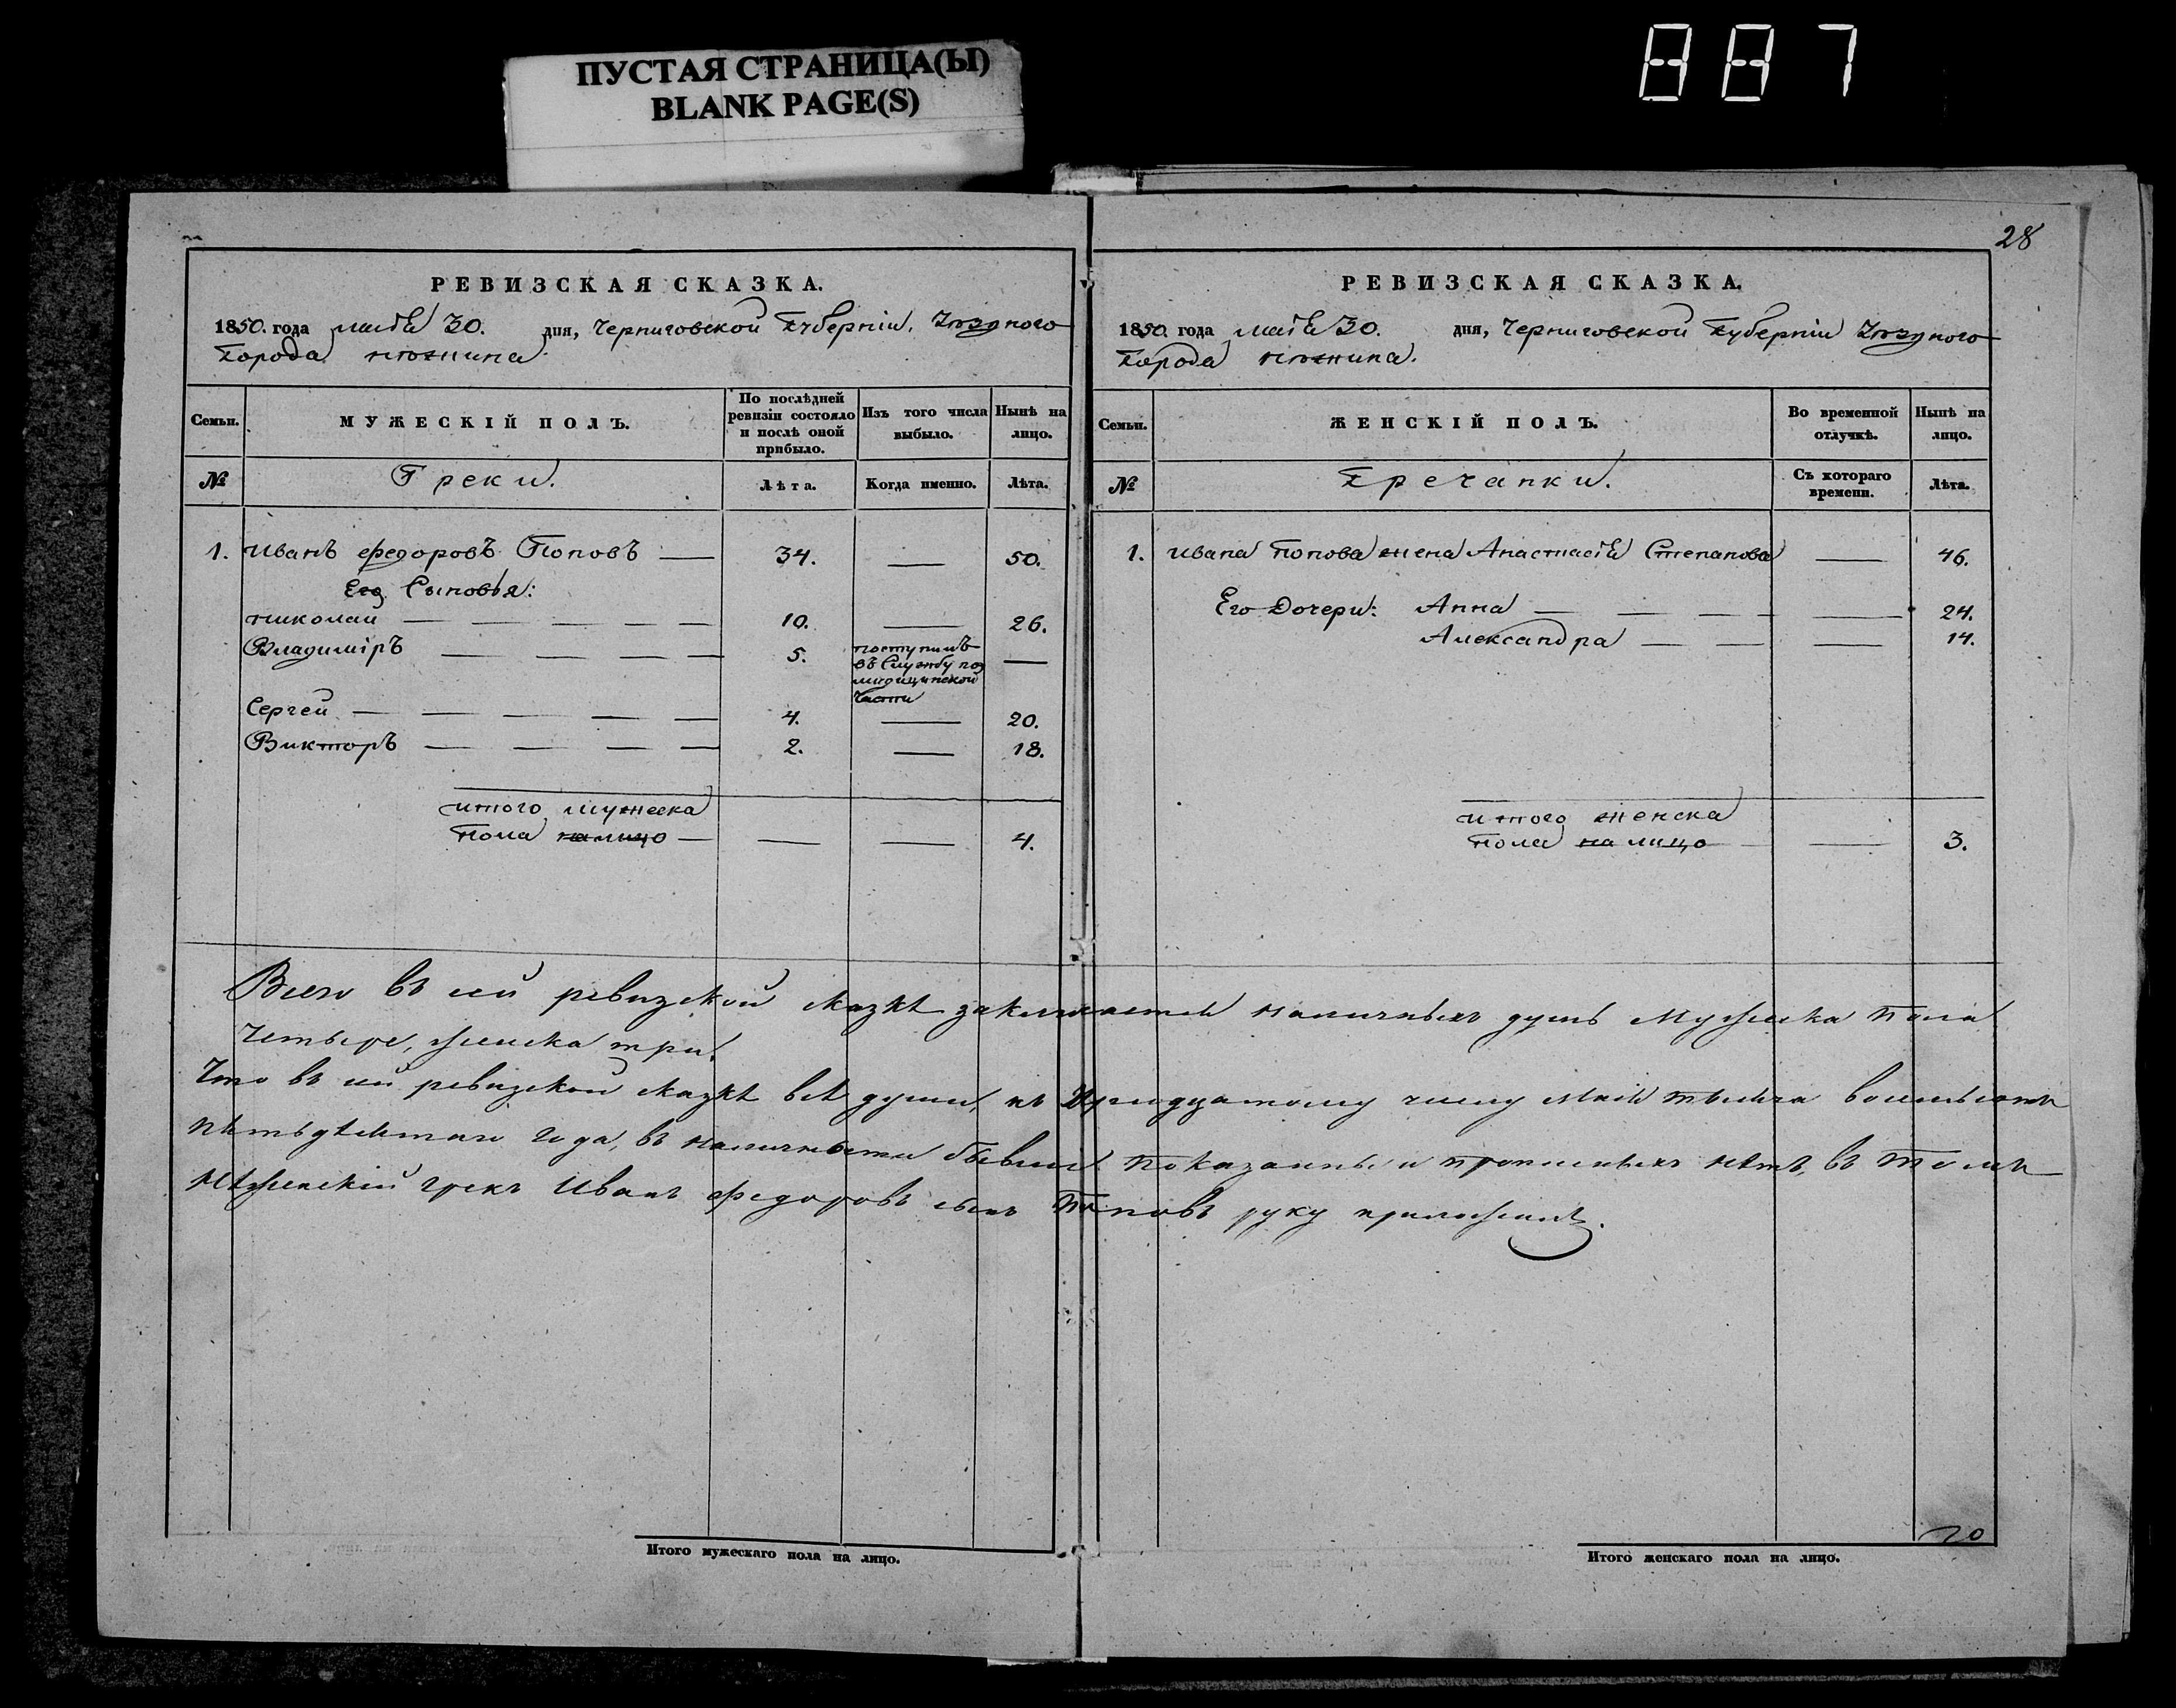 ПУСТАЯ СТРАНИЦА(Ы)
BLANK PAGE(S)
887
28
РЕВИЗСКАЯ СКАЗКА.
1850. года маія 30. дня, Черниговской Губерніи, Уѣзднаго
Города Нѣжина.
Семьи.
МУЖЕСКІЙ ПОЛЪ.
По послѣдней ревизіи состояло и послѣ оной прибыло.
Изъ того числа выбыло.
Нынѣ на лицо.
№
Греки.
Лѣта.
Когда именно.
Лѣта.
1. Иванъ Федоровъ Поповъ — 34. — 50.
Его Сыновья:
Николай — 10. — 26.
Владиміръ — 5. поступилъ —
въ Службу по
медицинской
части
Сергей — 4. — 20.
Викторъ — 2. — 18.
итого мужеска
пола налицо — — — 4.
РЕВИЗСКАЯ СКАЗКА.
1850. года маія 30. дня, Черниговской Губерніи Уѣзднаго
Города Нѣжина.
Семьи.
ЖЕНСКІЙ ПОЛЪ.
Во временной отлучкѣ.
Нынѣ на лицо.
№
Гречанки.
Съ котораго времени.
Лѣта.
1. Ивана Попова жена Анастасія Степанова — 46.
Его Дочери: Анна — 24.
Александра — 14.
итого женска
пола на лицо — 3.
Всего въ сей ревизской сказкѣ заключается наличныхъ душъ мужеска пола
четыре, женска три.
Что въ сей ревизской сказкѣ всѣ души, къ тридцатому числу маія тысяча восемьсотъ
пятьдесятаго года, въ наличности бывшія показанны и прописныхъ нѣтъ, въ томъ
Нѣжинскій грекъ Иванъ Федоровъ сынъ Поповъ руку приложилъ.
Итого мужескаго пола на лицо.
Итого женскаго пола на лицо.